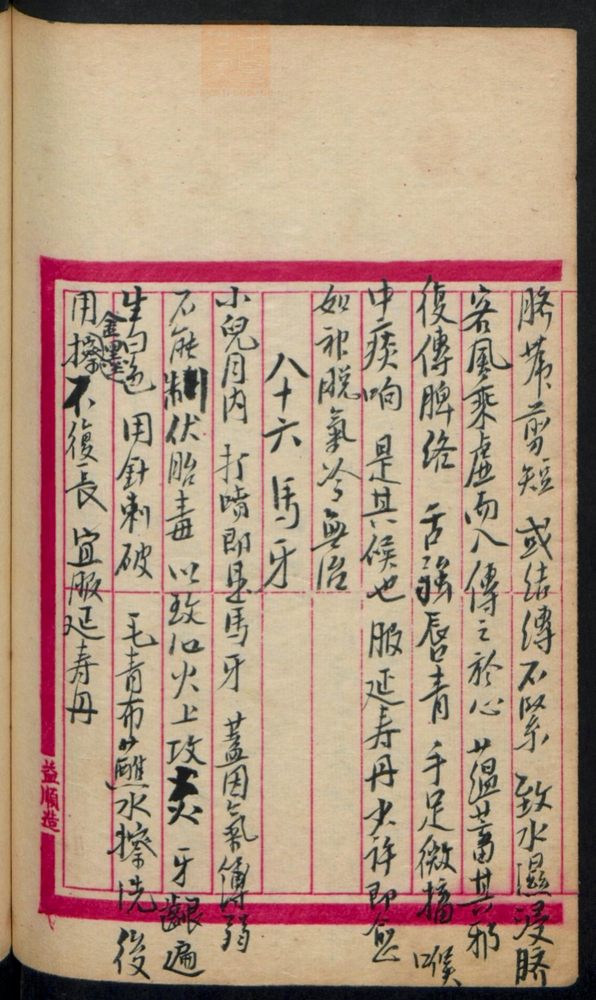 臍帶剪短 或結縛不緊 致水濕浸臍
客風乘虛而入傳之於心 蘊蓄其邪
復傳脾絡 舌強唇青 手足微搐 喉
中痰响 是其候也 服延寿丹少許即愈
如神脫氣冷無治
八十六 馬牙
小兒月内 打噴即是馬牙 蓋因氣傳弱
不能制伏胎毒 以致心火上攻 牙齦遍
生白色 用針刺破 毛青布蘸水擦洗 後
用金墨擦 不復長 宜服延寿丹
益順造